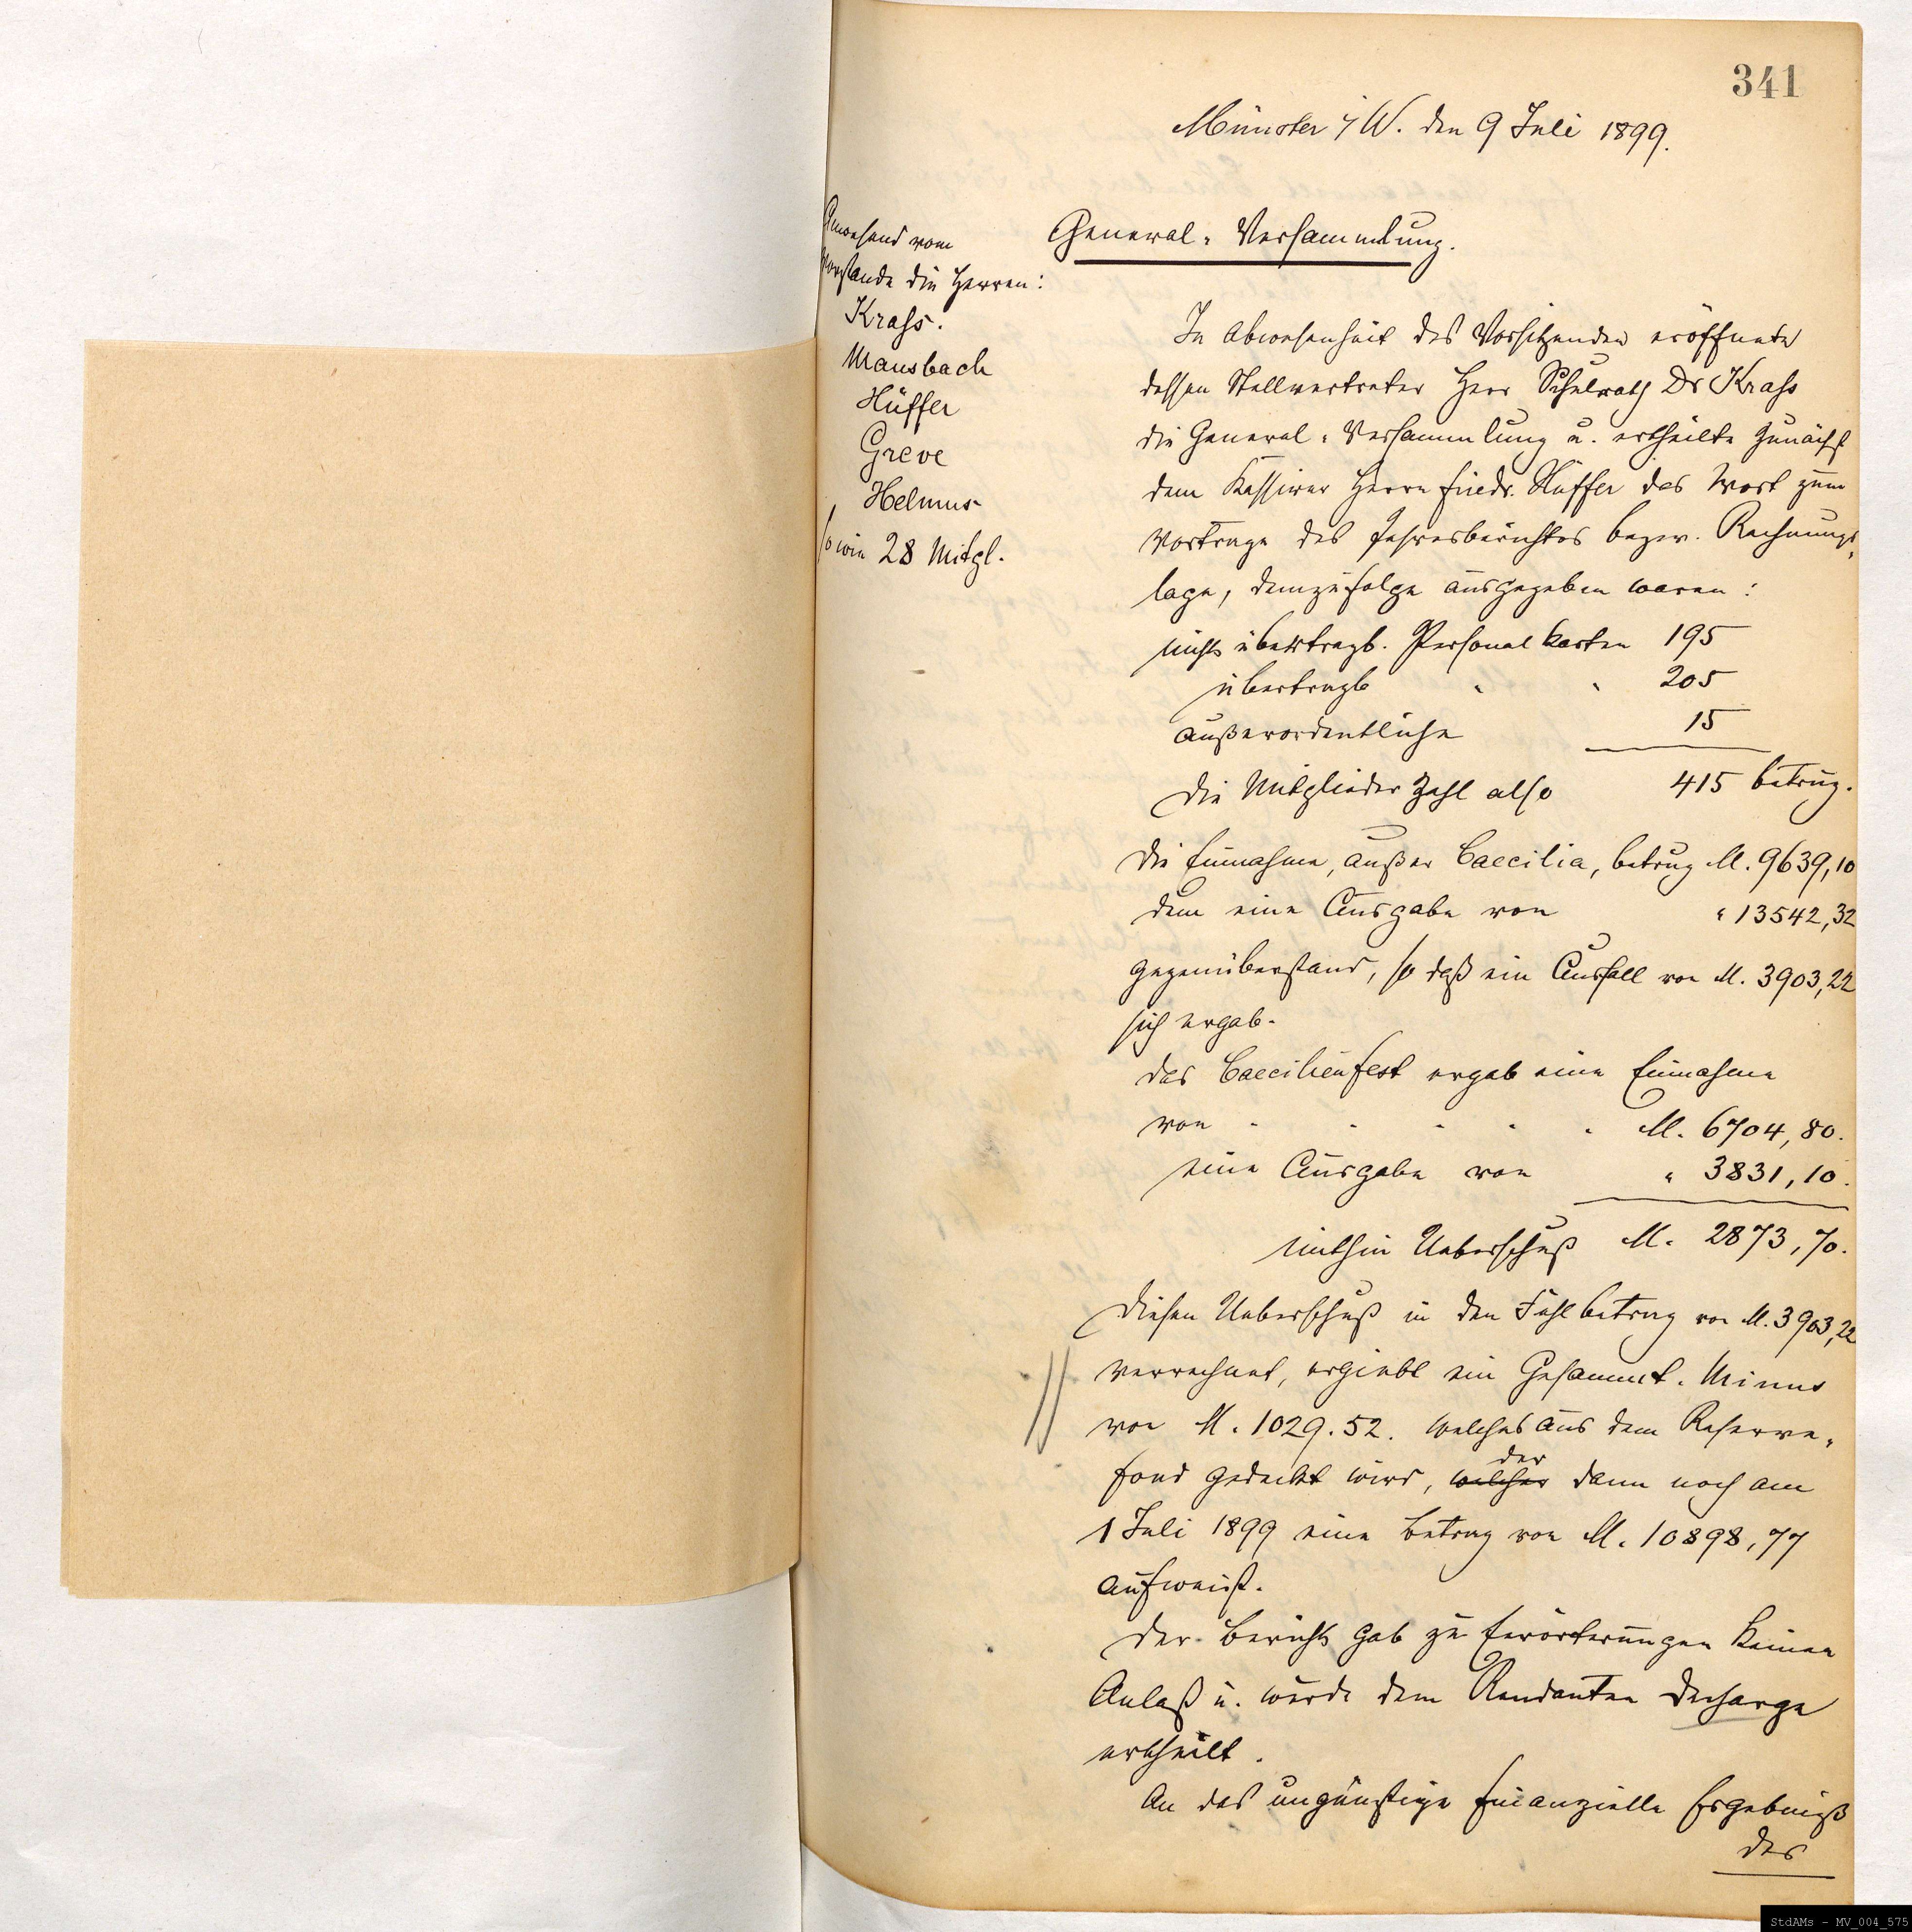 341
Münster i/W. den 9 Juli 1899.
Anwesend vom
Vorstande die Herren:
Krass.
Mausbach
Hüffer
Greve
Helmus
sowie 28 Mitgl.
General-Versammlung.
In Abwesenheit des Vorsitzenden eröffnete
dessen Stellvertreter Herr Schulrath Dr Krass
die General-Versammlung u. ertheilte zunächst
dem Kassirer Herrn Friedr. Hüffer das Wort zum
Vortrage des Jahresberichtes bezw. Rechnungs-
lage, demzufolge ausgegeben waren:
nicht übertragb. Personalkarten 195
übertragb " " 205
außerordentliche 15
die Mitglieder Zahl also 415 betrug.
Die Einnahme, außer Caecilia, betrug M. 9639,10
dem eine Ausgabe von " 13542,32
gegenüberstand, so daß ein Ausfall von M. 3903,22
sich ergab.
das Caecilienfest ergab eine Einnahme
von - - - - - M. 6704,80.
eine Ausgabe von " 3831,10.
mithin Ueberschuß M. 2873,70.
Diesen Ueberschuß in den Fehlbetrag von M. 3903,22
verrechnet, ergiebt ein Gesammt-Minus
von M. 1029.52. welches aus dem Reserve-
der
fond gedeckt wird, welcher dann noch am
1 Juli 1899 eine Betrag von M. 10898,77
aufweist.
Der Bericht gab zu Erörterungen keinen
Anlaß u. wurde dem Rendanten Decharge
ertheilt.
An das ungünstige finanzielle Ergebniß
des
StdAMs - MV_004_575